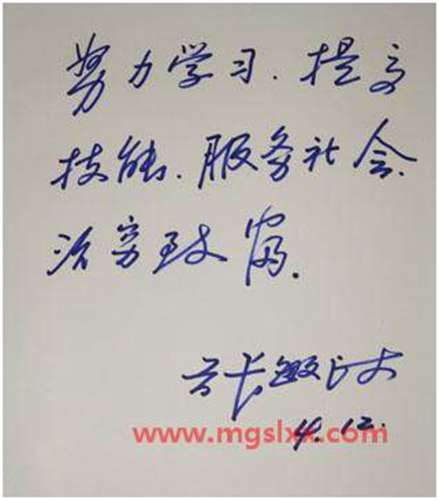 努力学习、提高
技能、服务社会、
治穷致富。
张敏才
4.12.
www.mgslxx.com